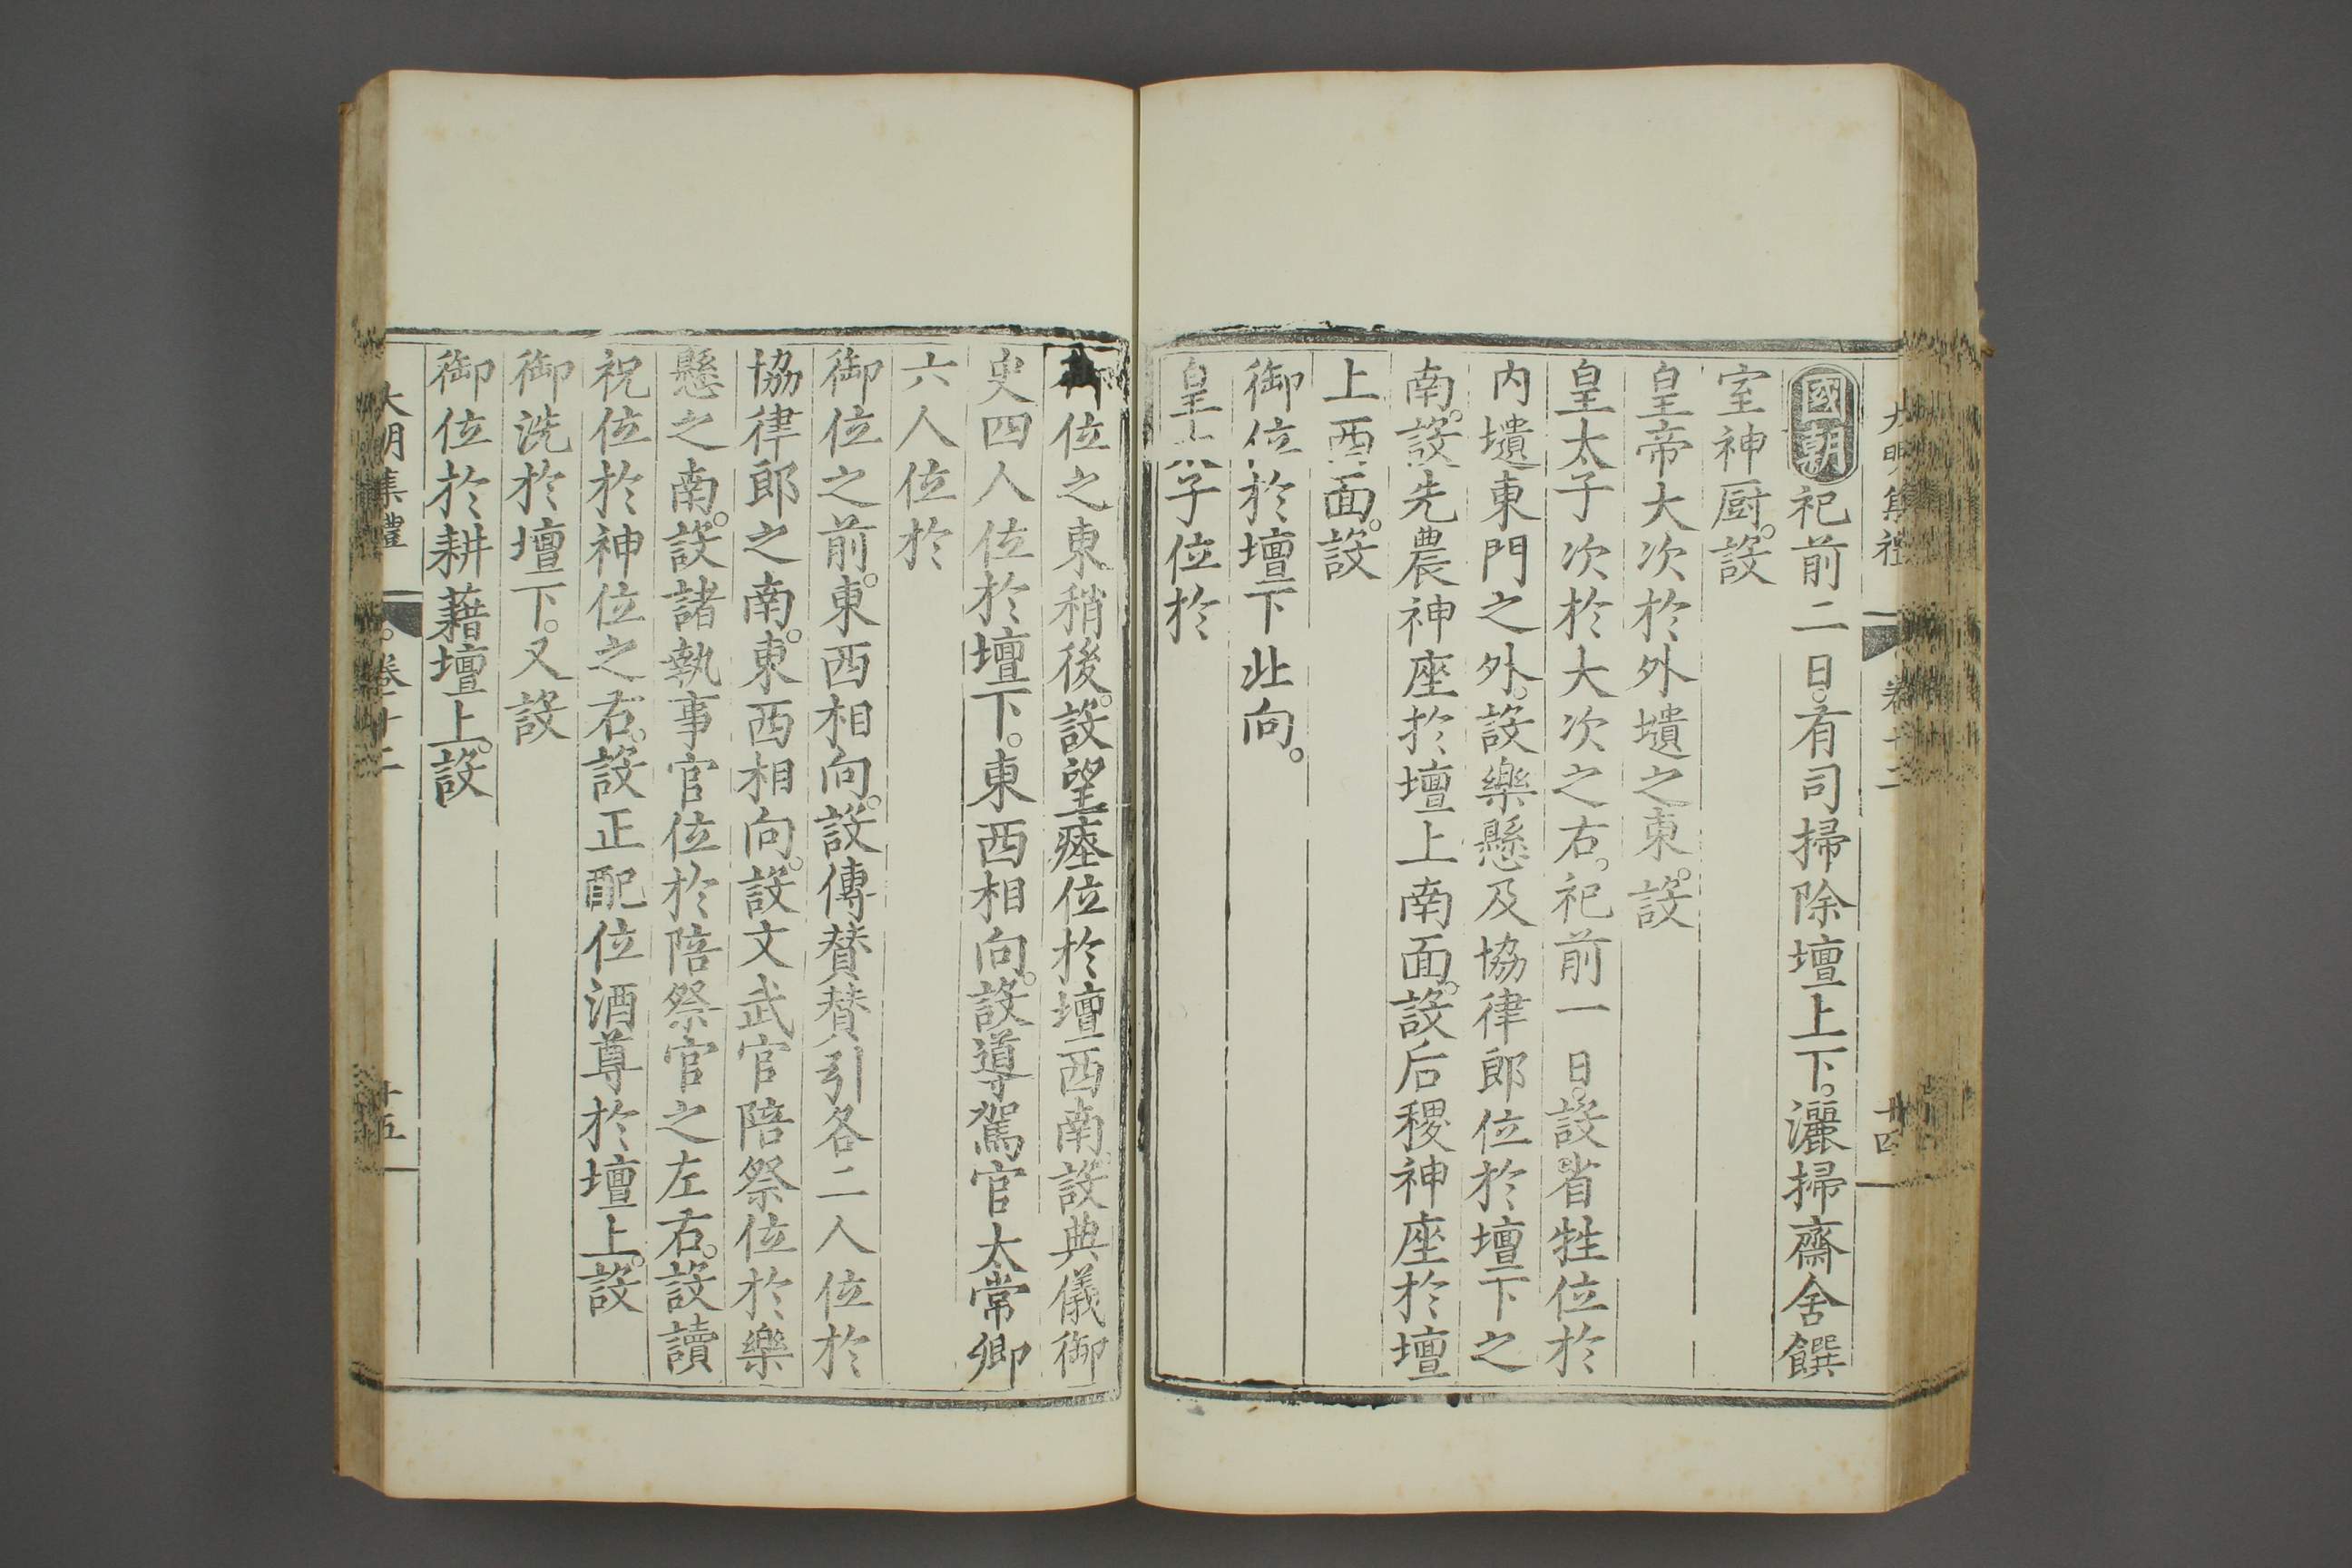 大明集禮 卷十二 廿四
國朝祀前二日。有司掃除壇上下。灑掃齋舍饌
室神厨。設
皇帝大次於外壝之東。設
皇太子次於大次之右。祀前一日。設省牲位於
内壝東門之外。設樂懸及協律郎位於壇下之
南。設先農神座於壇上南面。設后稷神座於壇
上西面。設
御位於壇下北向。
皇太子位於
御位之東稍後。設望瘞位於壇西南。設典儀御
史四人位於壇下。東西相向。設導駕官太常卿
六人位於
御位之前。東西相向。設傳賛賛引各二人位於
協律郎之南。東西相向。設文武官陪祭位於樂
懸之南。設諸執事官位於陪祭官之左右。設讀
祝位於神位之右。設正配位酒尊於壇上。設
御洗於壇下。又設
御位於耕藉壇上。設
大明集禮 卷十二 廿五